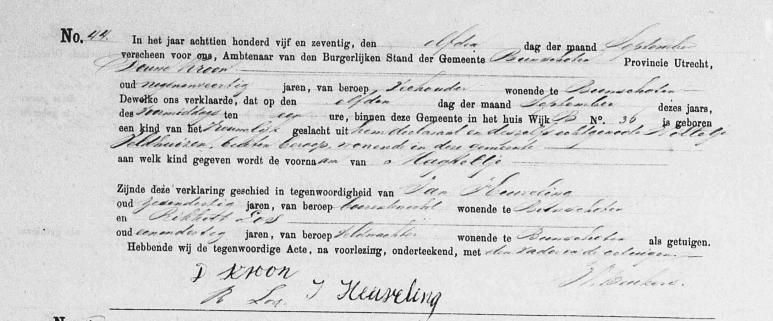 No. 44. In het jaar achttien honderd vijf en zeventig, den elfden dag der maand September
verscheen voor ons, Ambtenaar van den Burgerlijken Stand der Gemeente Bunschoten Provincie Utrecht,
Kroon
oud negenenveertig jaren, van beroep Veehouder wonende te Bunschoten
Dewelke ons verklaarde, dat op den elfden dag der maand September dezes jaars,
des Voormiddags ten een ure, binnen deze Gemeente in het huis Wijk B No. 36 is geboren
een kind van het Vrouwlijk geslacht uit hem declarant en deszelfs echtgenoote
Veldhuizen, zonder beroep, wonende in deze gemeente
aan welk kind gegeven wordt de voornaam van
Zijnde deze verklaring geschied in tegenwoordigheid van Jan Heuveling
oud zesendertig jaren, van beroep boerenknecht wonende te Bunschoten
en Rikkelt Los
oud eenendertig jaren, van beroep veldwachter wonende te Bunschoten als getuigen.
Hebbende wij de tegenwoordige Acte, na voorlezing, onderteekend, met den Vader en de getuigen
D Kroon
R Los. J Heuveling